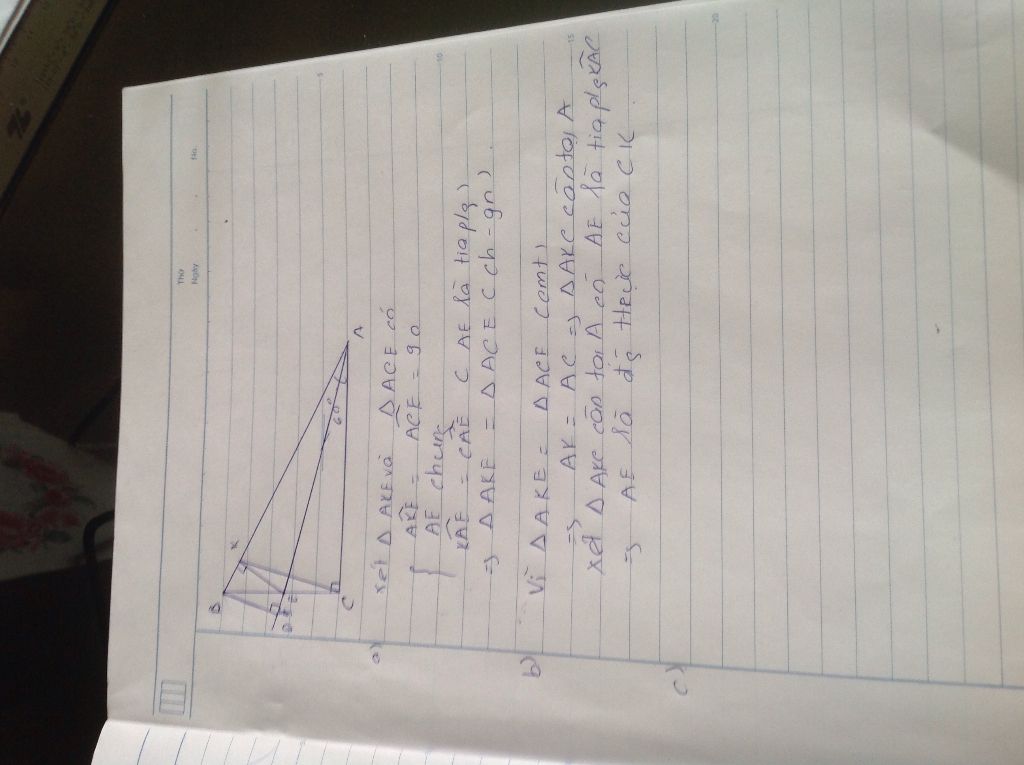 Thứ
Ngày
No.
B
K
D
E
C
60°
A
5
a) xét Δ AKE và Δ ACE có
AKE = ACE = 90
AE chung
KAE = CAE ( AE là tia plg )
=> Δ AKE = Δ ACE ( ch - gn ) .
10
b) Vì Δ AKE = Δ ACE ( cmt )
=> AK = AC => Δ AKC cân tại A
15
xét Δ AKC cân tại A có AE là tia plg KAC
=> AE là đg trực của CK
c)
20